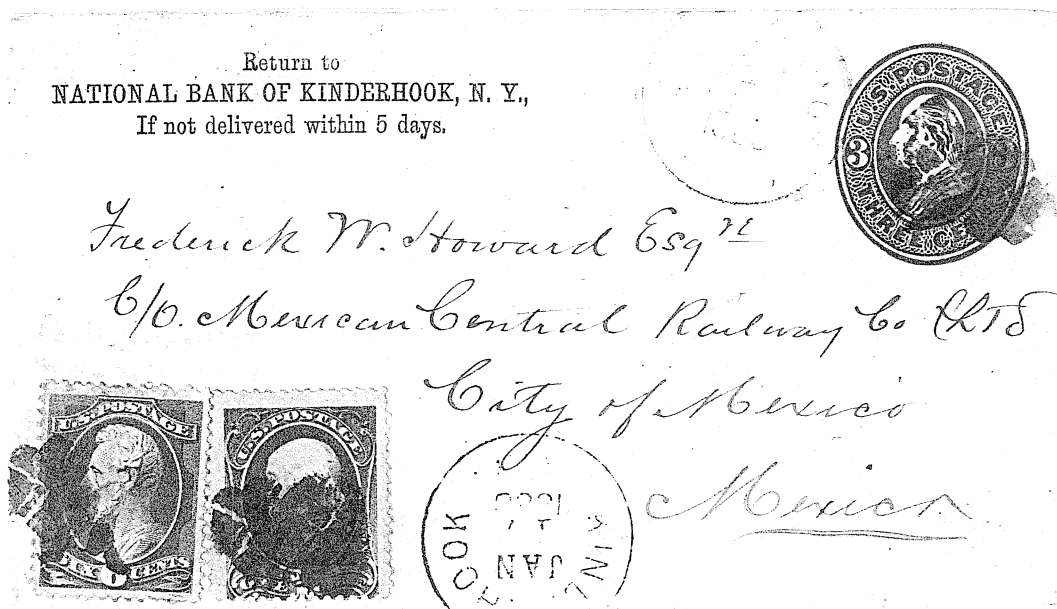 Return to
NATIONAL BANK OF KINDERHOOK, N. Y.,
If not delivered within 5 days.
U.S. POSTAGE
3
THREE CE
Frederick W. Howard Esq re
C/O. Mexican Central Railway Co (LTD
City of Mexico
Mexico
U.S. POSTAGE
1 CENT
U.S. POSTAGE
KIN OOK
JAN